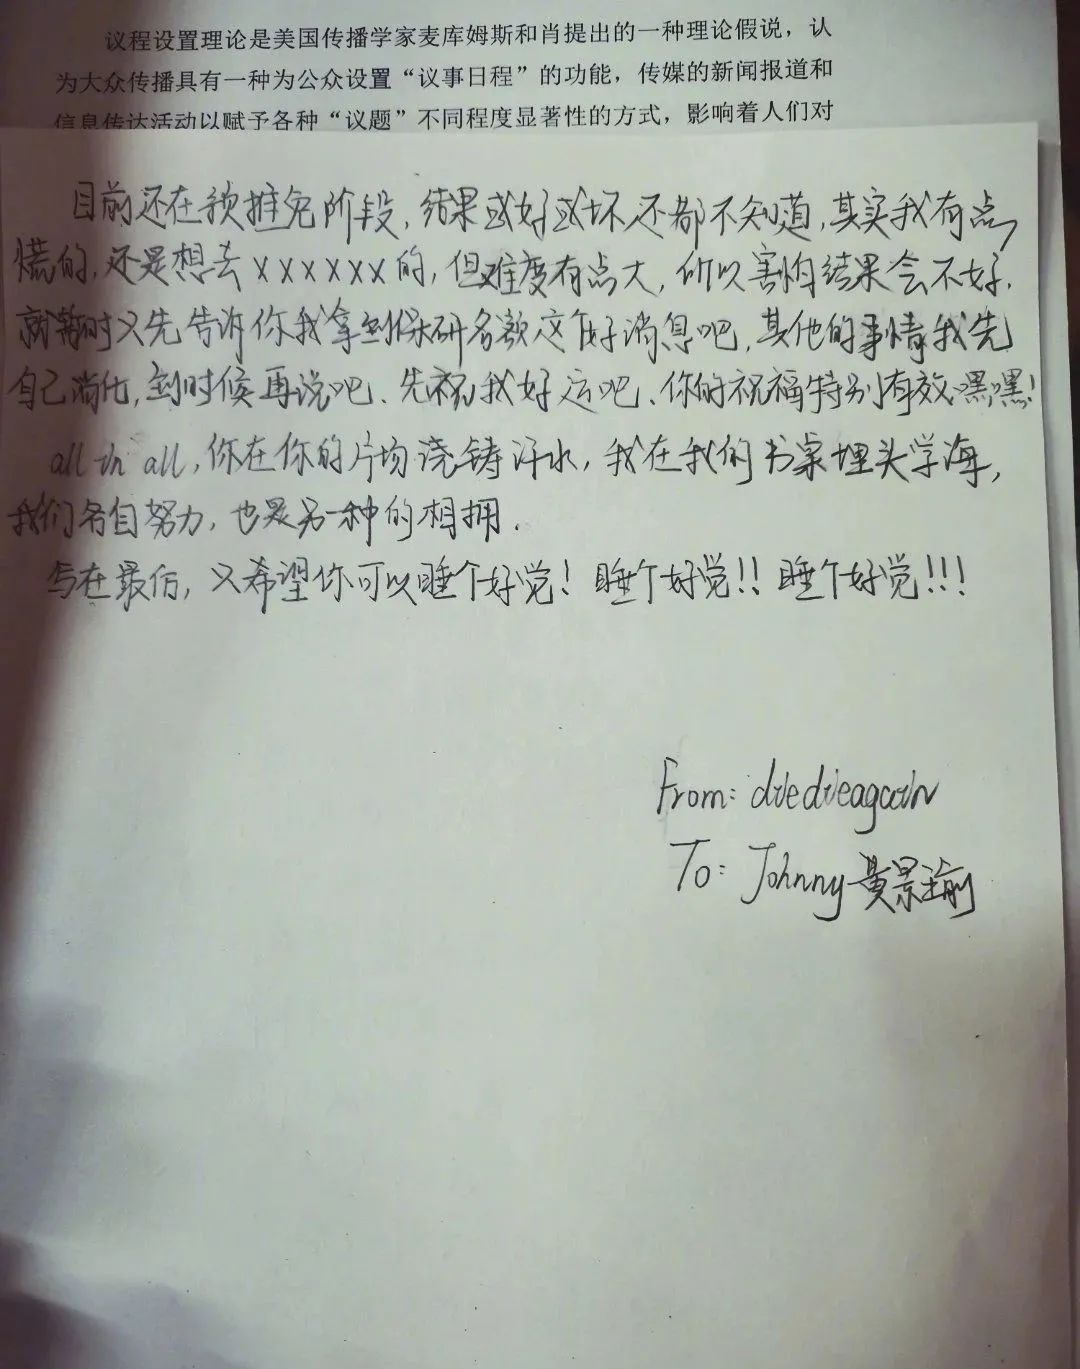 议程设置理论是美国传播学家麦库姆斯和肖提出的一种理论假说，认
为大众传播具有一种为公众设置“议事日程”的功能，传媒的新闻报道和
信息传达活动以赋予各种“议题”不同程度显著性的方式，影响着人们对
目前还在预推免阶段，结果或好或坏还都不知道，其实我有点
慌的，还是想去xxxxxx的，但难度有点大，所以害怕结果会不好.
就暂时只先告诉你我拿到保研名额这个好消息吧，其他的事情我先
自己消化，到时候再说吧、先祝我好运吧、你的祝福特别有效嘿嘿！
all in all，你在你的片场浇铸汗水，我在我的书案埋头学海，
我们各自努力，也是另一种的相拥.
写在最后，只希望你可以睡个好觉！睡个好觉！！睡个好觉！！！
From: diedieagain
To: Johnny黄景瑜